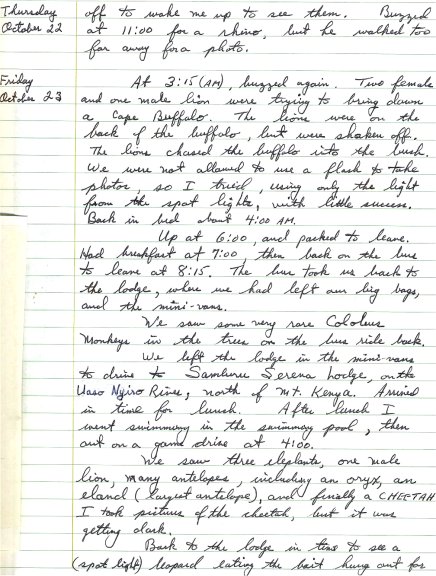 Thursday off to wake me up to see them. Buzzed
October 22 at 11:00 for a rhino, but he walked too
far away for a photo.
Friday At 3:15 (AM), buzzed again. Two female
October 23 and one male lion were trying to bring down
a Cape Buffalo. The lions were on the
back of the buffalo, but were shaken off.
The lions chased the buffalo into the bush.
We were not allowed to use a flash to take
photos, so I tried, using only the light
from the spot lights, with little success.
Back in bed about 4:00 AM.
Up at 6:00, and packed to leave.
Had breakfast at 7:00, then back on the bus
to leave at 8:15. The bus took us back to
the lodge, where we had left our big bags,
and the mini-vans.
We saw some very rare Colobus
Monkeys in the trees on the bus ride back.
We left the lodge in the mini-vans
to drive to Samburu Serena Lodge, on the
Uaso Nyiro River, north of Mt. Kenya. Arrived
in time for lunch. After lunch I
went swimming in the swimming pool, then
out on a game drive at 4:00.
We saw three elephants, one male
lion, many antelopes, including an oryx, an
eland (largest antelope), and finally a CHEETAH
I took picture of the cheetah, but it was
getting dark.
Back to the lodge in time to see a
(spot light) leopard eating the bait hung out for